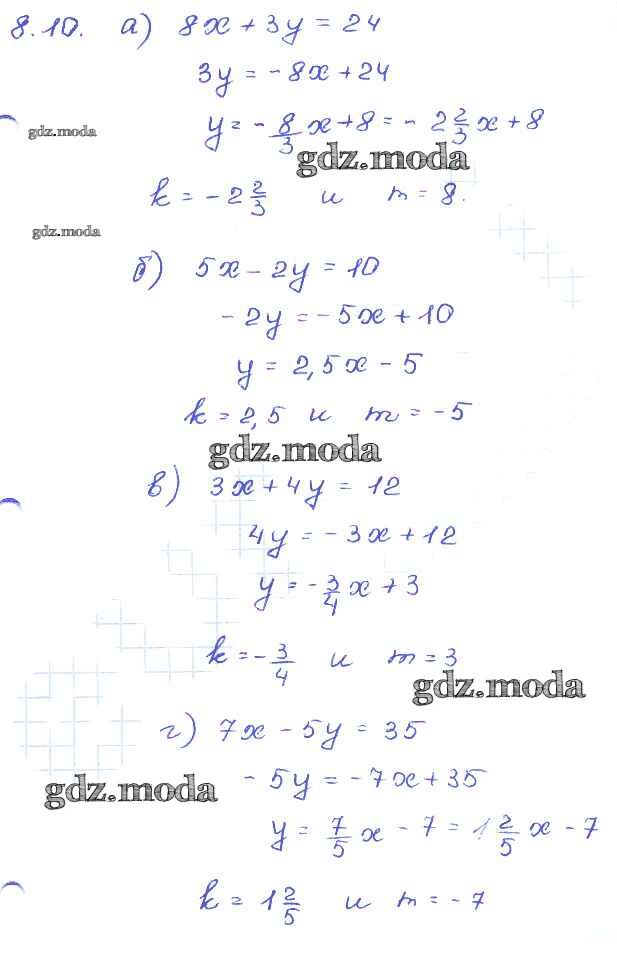 8.10. а) 8x + 3y = 24
3y = -8x + 24
gdz.moda
y = - 8/3 x + 8 = - 2 2/3 x + 8
gdz.moda
k = -2 2/3 и m = 8.
gdz.moda
б) 5x - 2y = 10
-2y = -5x + 10
y = 2,5x - 5
k = 2,5 и m = -5
gdz.moda
в) 3x + 4y = 12
4y = -3x + 12
y = - 3/4 x + 3
k = - 3/4 и m = 3
gdz.moda
г) 7x - 5y = 35
-5y = -7x + 35
gdz.moda
y = 7/5 x - 7 = 1 2/5 x - 7
k = 1 2/5 и m = -7